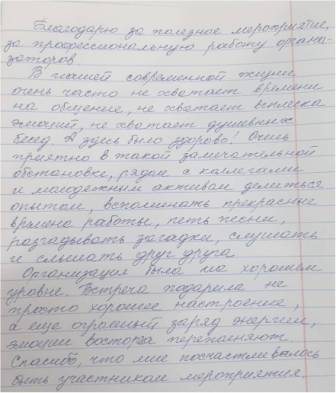 Благодарю за полезное мероприятие,
за профессиональную работу органи-
заторов
В нашей современной жизни
очень часто не хватает времени
на общение, не хватает выплеска
эмоций, не хватает душевных
бесед. А здесь было здорово! Очень
приятно в такой замечательной
обстановке, рядом с коллегами
и молодежным активом делиться
опытом, вспоминать прекрасные
времена работы, петь песни,
разгадывать загадки, слушать
и слышать друг друга
Организация была на хорошем
уровне. Встреча подарила не
просто хорошее настроение,
а еще огромный заряд энергии,
эмоции восторга переполняют
Спасибо, что мне посчастливилось
быть участником мероприятия.